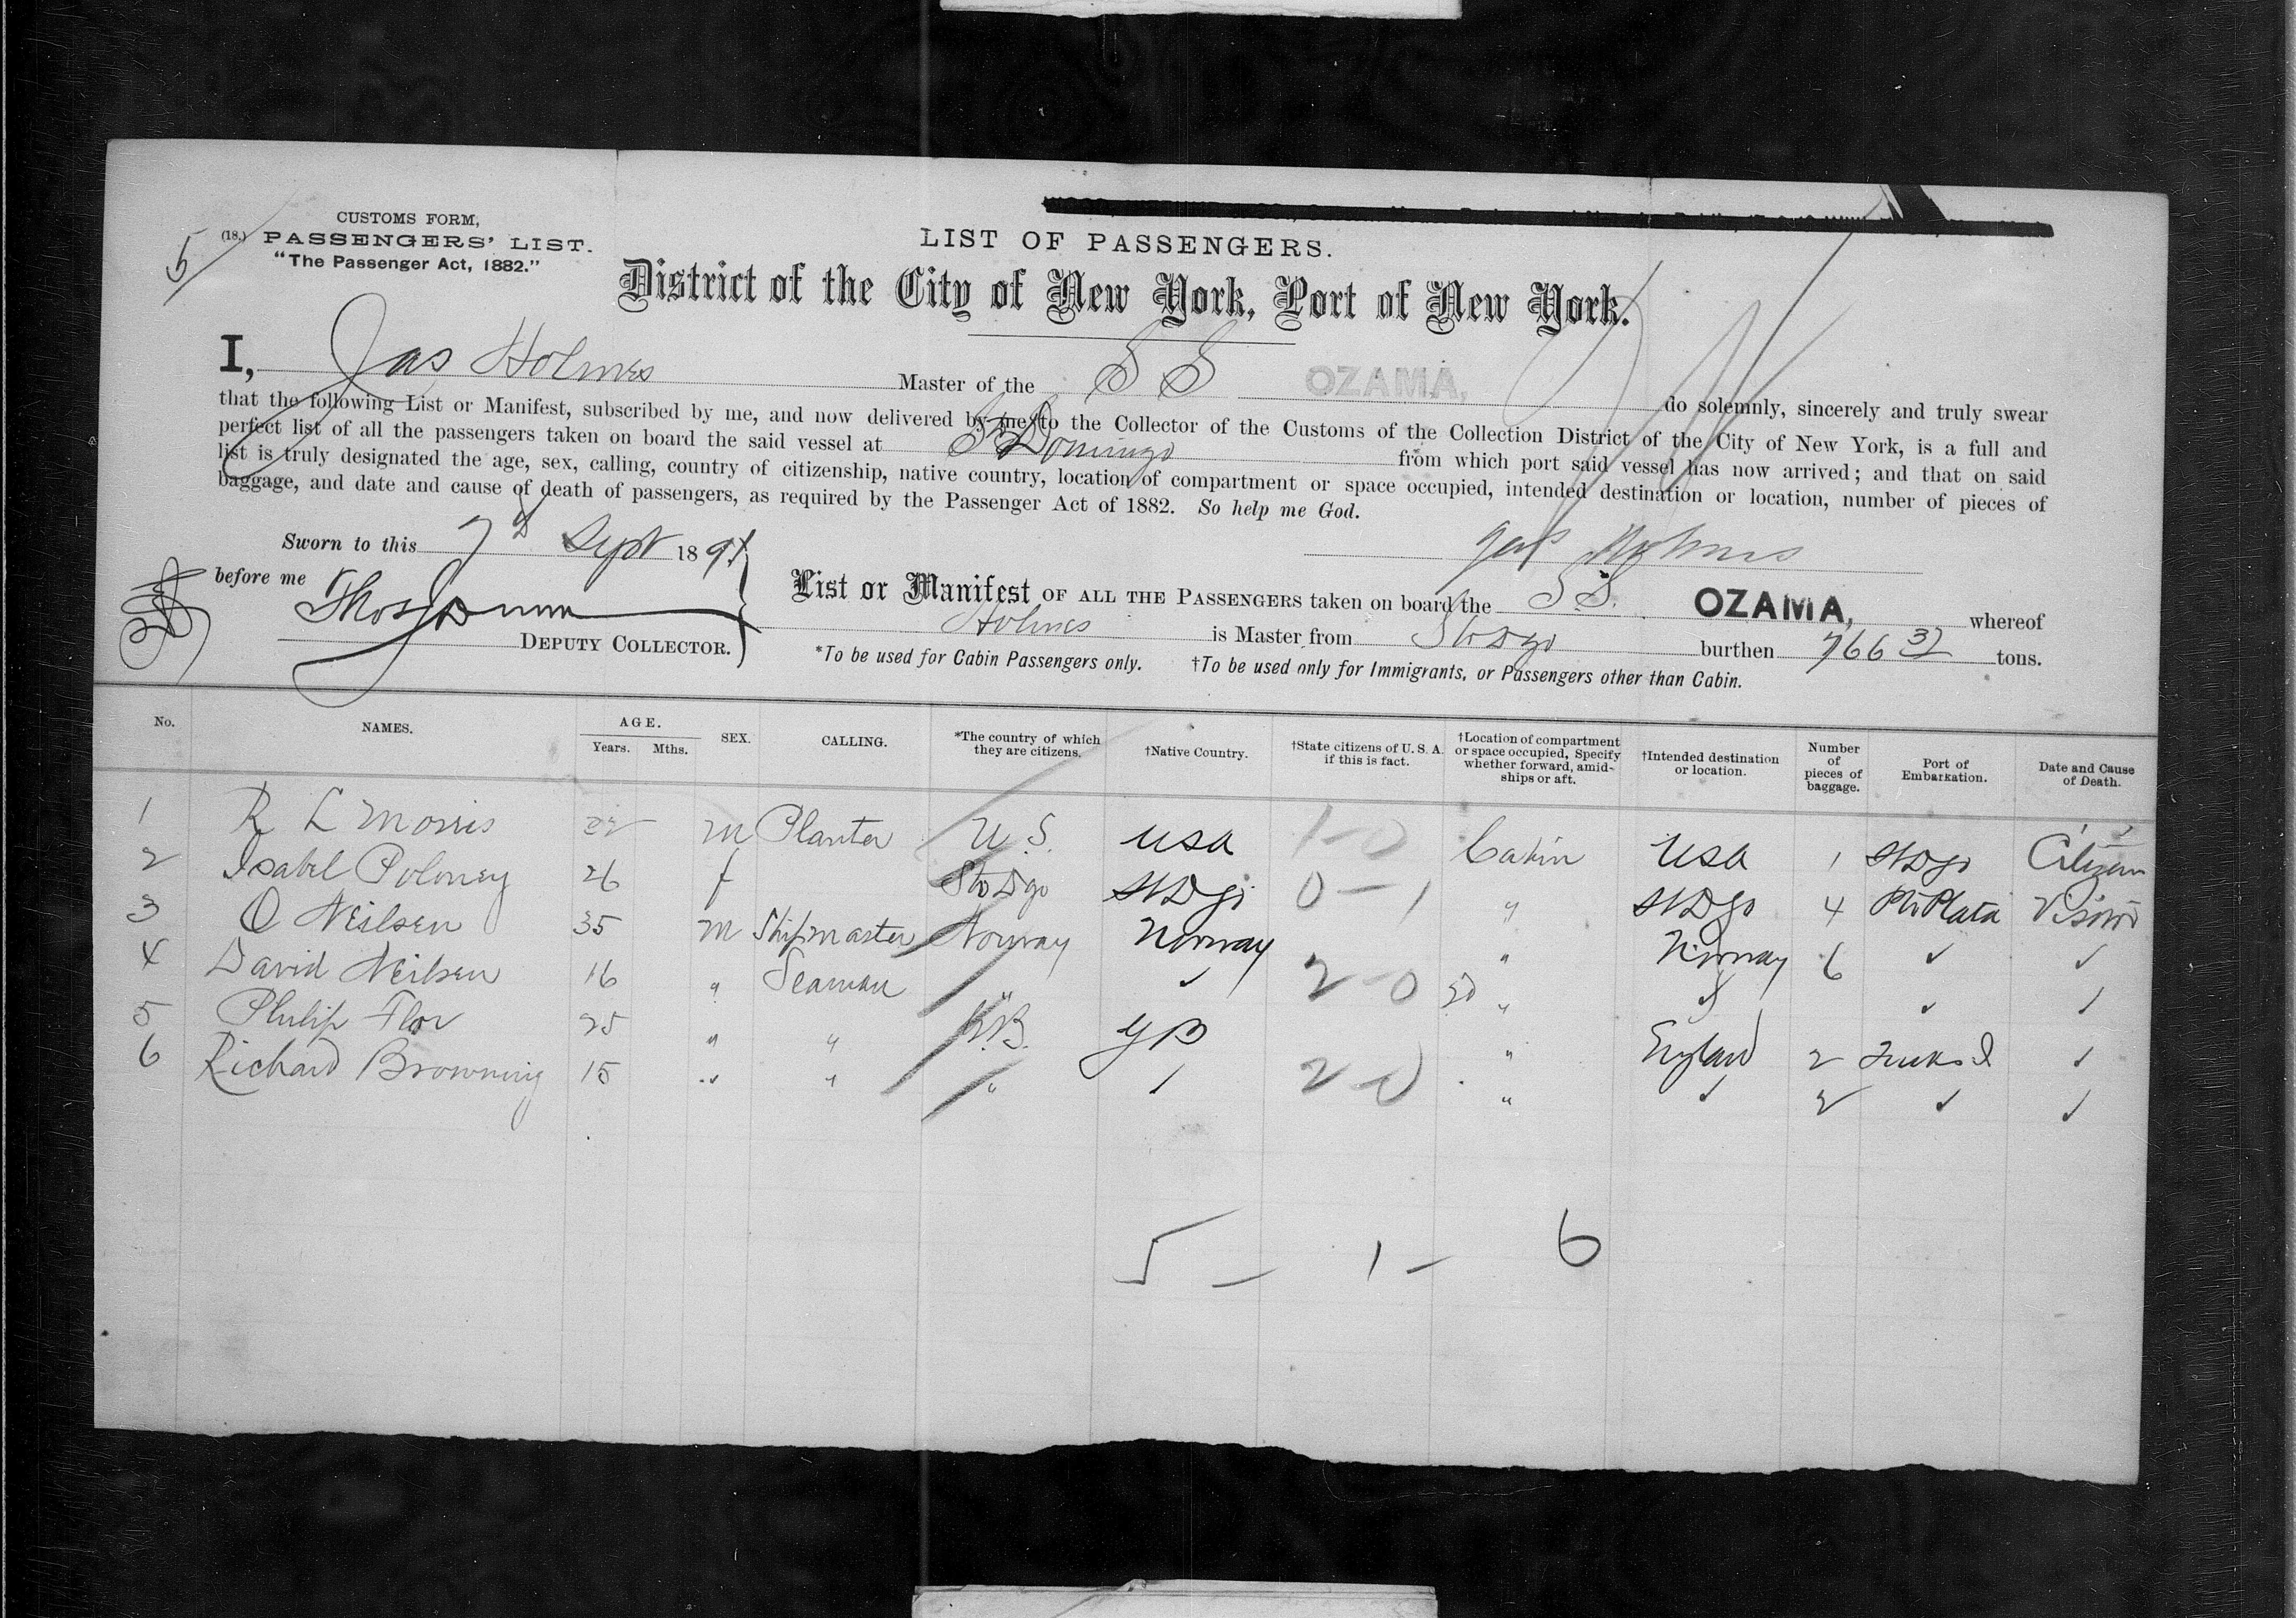 5
(18.) CUSTOMS FORM,
PASSENGERS' LIST.
"The Passenger Act, 1882."
LIST OF PASSENGERS.
District of the City of New York, Port of New York.
I, Jas Holmes Master of the S S OZAMA, do solemnly, sincerely and truly swear
that the following List or Manifest, subscribed by me, and now delivered by me to the Collector of the Customs of the Collection District of the City of New York, is a full and
perfect list of all the passengers taken on board the said vessel at St Domingo from which port said vessel has now arrived; and that on said
list is truly designated the age, sex, calling, country of citizenship, native country, location of compartment or space occupied, intended destination or location, number of pieces of
baggage, and date and cause of death of passengers, as required by the Passenger Act of 1882. So help me God.
Sworn to this 7 Sept 1891
Jas Holmes
before me Thos Dunn
DEPUTY COLLECTOR.
List or Manifest OF ALL THE PASSENGERS taken on board the S S. OZAMA, whereof
Holmes is Master from Sto Dgo burthen 766 32 tons.
*To be used for Cabin Passengers only. †To be used only for Immigrants, or Passengers other than Cabin.
No. NAMES. AGE. Years. Mths. SEX. CALLING. *The country of which they are citizens. †Native Country. †State citizens of U. S. A. if this is fact. †Location of compartment or space occupied, Specify whether forward, amidships or aft. †Intended destination or location. Number of pieces of baggage. Port of Embarkation. Date and Cause of Death.
1 R L Morris m Planter U. S. USA 1-0 Cabin USA 1 St Dgo Citizen
2 Isabel Poloney 26 f Sto Dgo St Dgo 0-1 " St Dgo 4 Pto Plata Visitor
3 O Neilsen 35 m Shipmaster Norway Norway " Norway 6 ✓ ✓
4 David Neilsen 16 " Seaman " ✓ 2-0 " ✓ ✓ ✓
5 Philip Flor 25 " " G.B. GB " England 2 Turks I ✓
6 Richard Browning 15 " " " ✓ 2-0 " ✓ 2 ✓ ✓
5 - 1 - 6